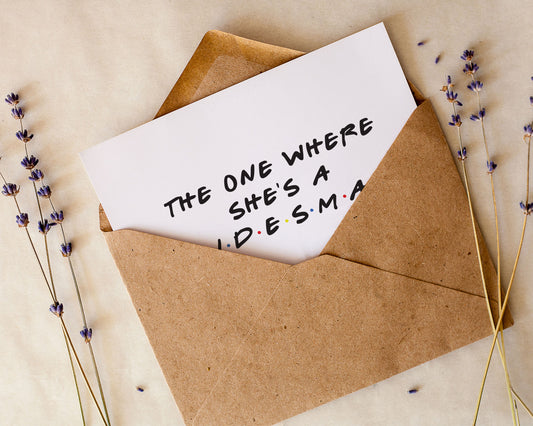 THE ONE WHERE
SHE'S A
I·D·E·S·M·A